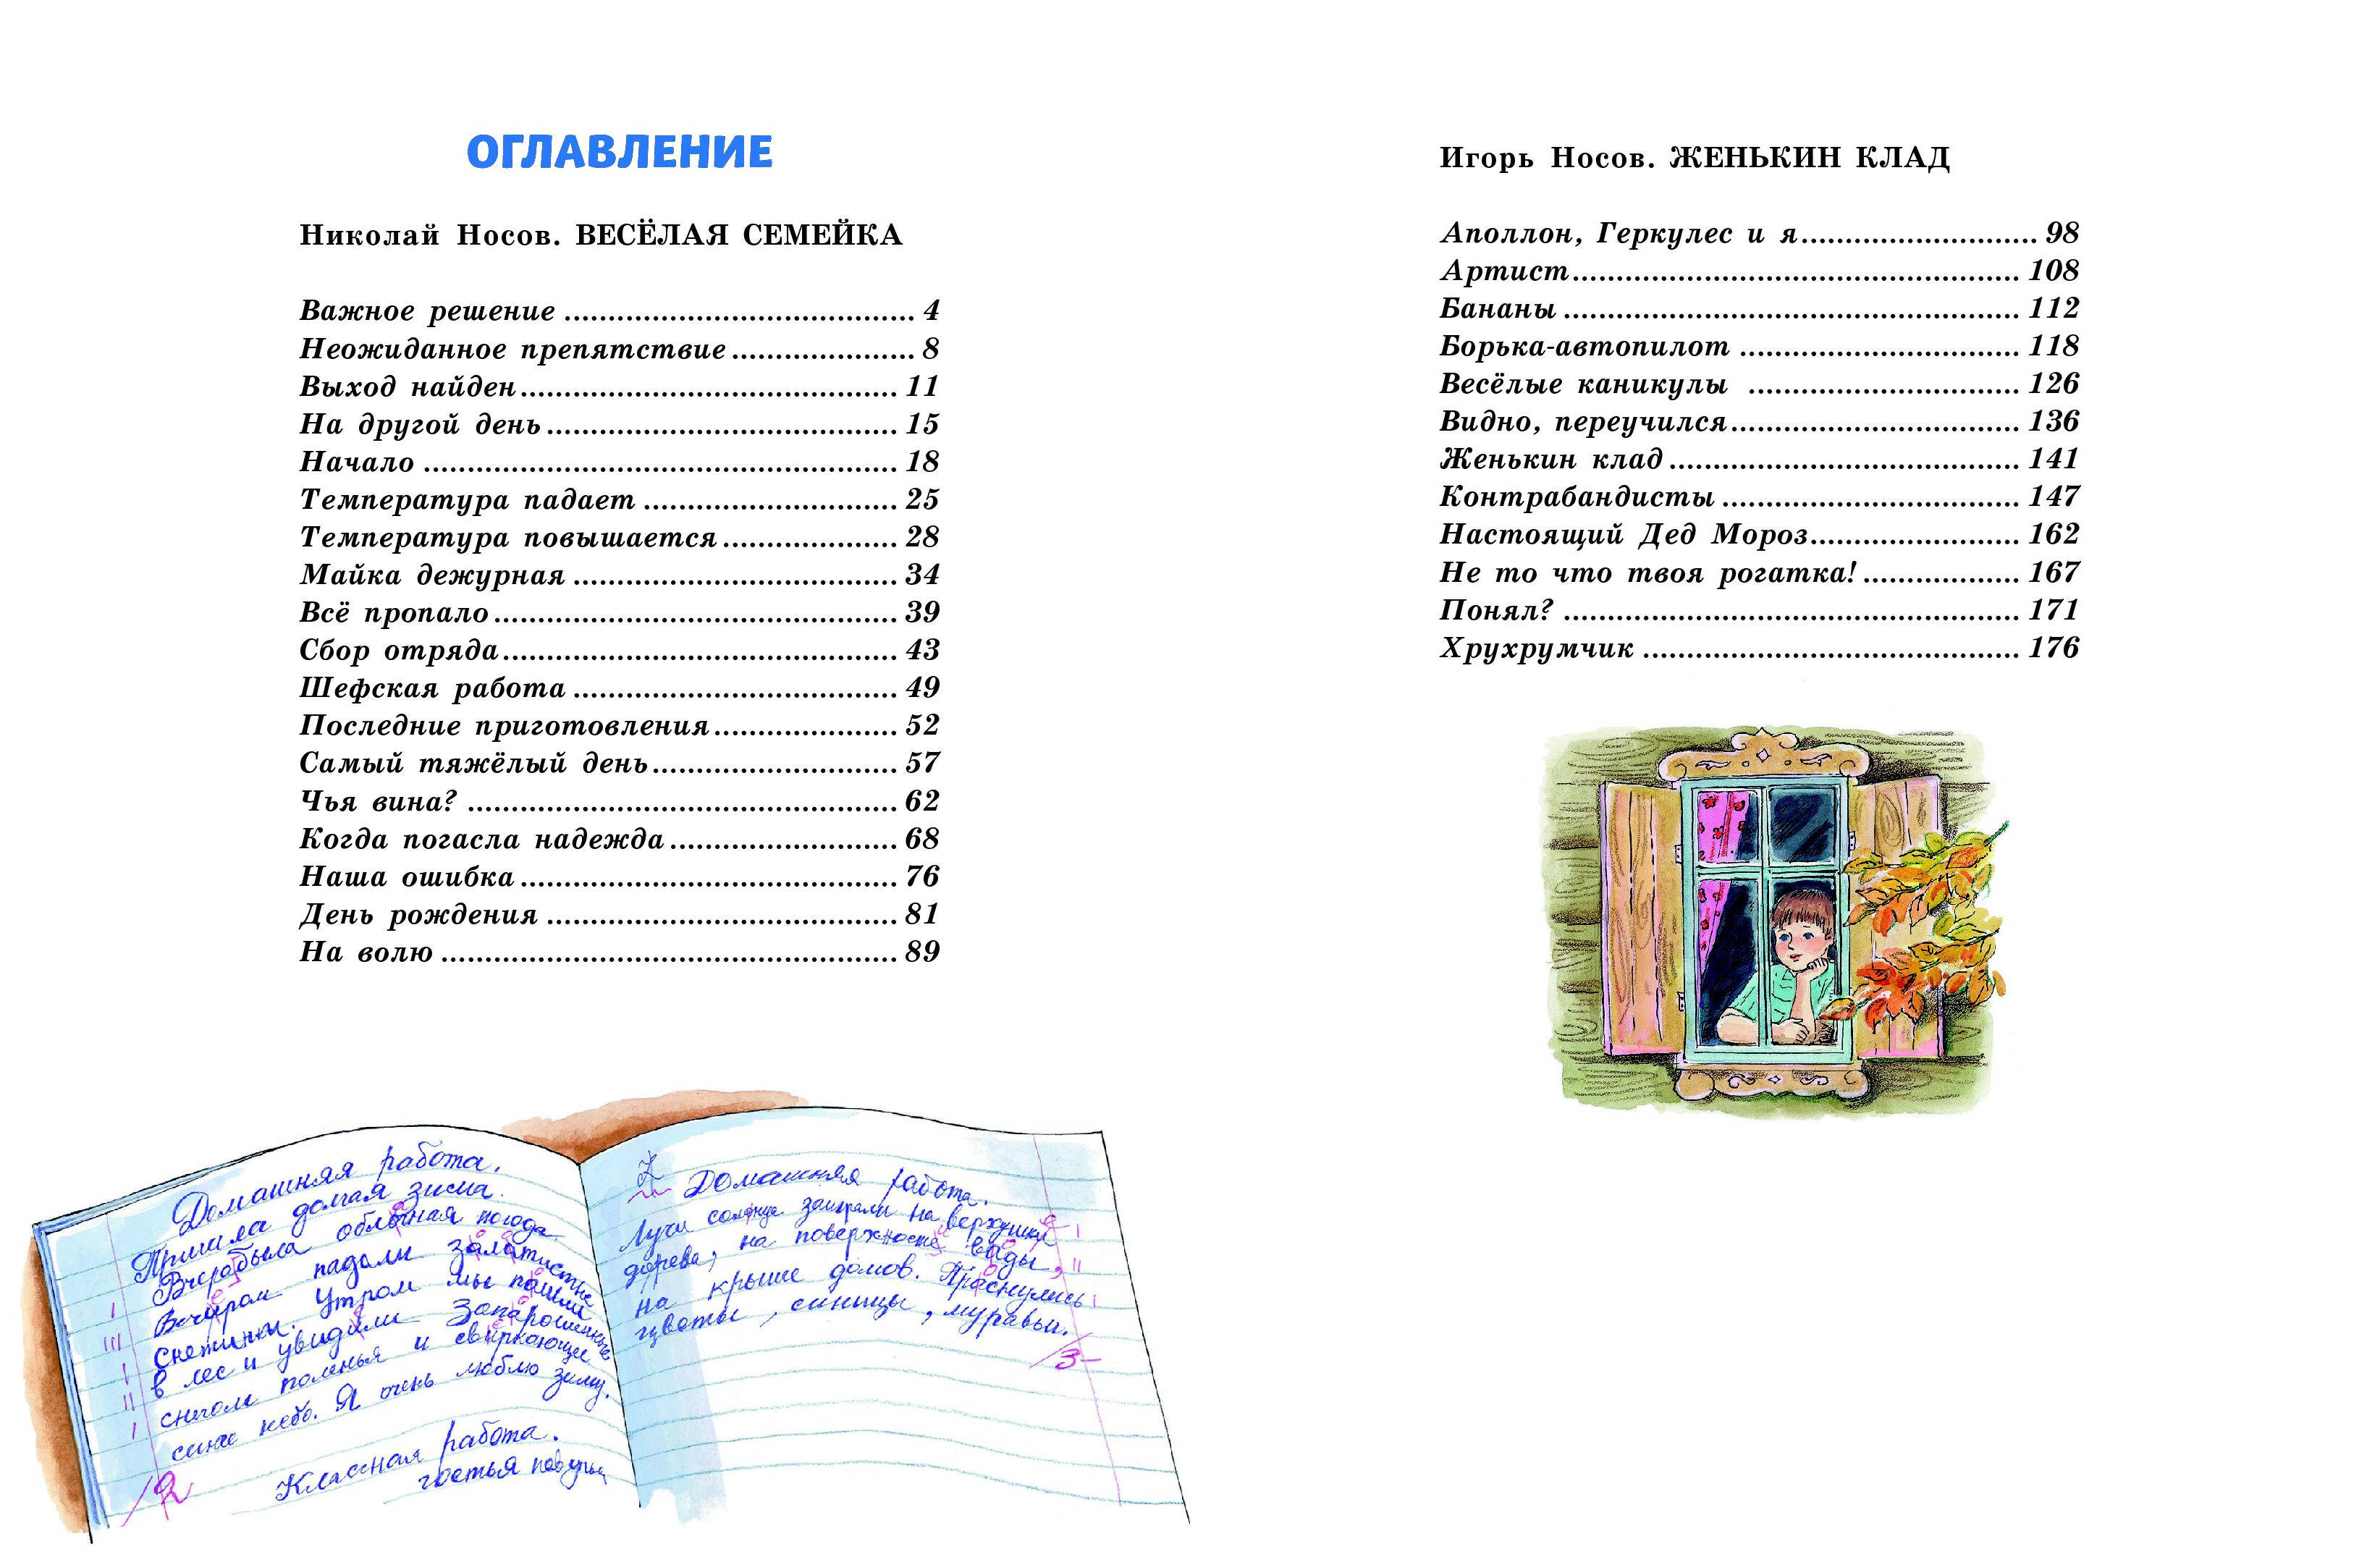 ОГЛАВЛЕНИЕ
Николай Носов. ВЕСЁЛАЯ СЕМЕЙКА
Важное решение ........................................ 4
Неожиданное препятствие ..................... 8
Выход найден ........................................... 11
На другой день ........................................ 15
Начало ...................................................... 18
Температура падает ............................. 25
Температура повышается .................... 28
Майка дежурная ..................................... 34
Всё пропало .............................................. 39
Сбор отряда ............................................. 43
Шефская работа ..................................... 49
Последние приготовления ..................... 52
Самый тяжёлый день ............................ 57
Чья вина? ................................................. 62
Когда погасла надежда .......................... 68
Наша ошибка ........................................... 76
День рождения ........................................ 81
На волю .................................................... 89
Игорь Носов. ЖЕНЬКИН КЛАД
Аполлон, Геркулес и я ........................... 98
Артист ................................................... 108
Бананы .................................................... 112
Борька-автопилот ................................ 118
Весёлые каникулы ............................... 126
Видно, переучился ................................. 136
Женькин клад ........................................ 141
Контрабандисты .................................. 147
Настоящий Дед Мороз ........................ 162
Не то что твоя рогатка! .................. 167
Понял? .................................................... 171
Хрухрумчик ........................................... 176
Домашняя работа.
Пришла долгая зима.
Вчера была облачная погода
Вечиром падали залатистые
снежинки. Утром мы пашли
в лес и увидили Запорошенные
снегом поленья и свиркающее
синее небо. Я очень люблю зиму.
Классная работа.
2
Домашняя работа.
Лучи солнца заиграли на верхушки
дерева, на поверхности вады,
на крыше домов. Праснулись
цветы, синицы, муравьи.
3-